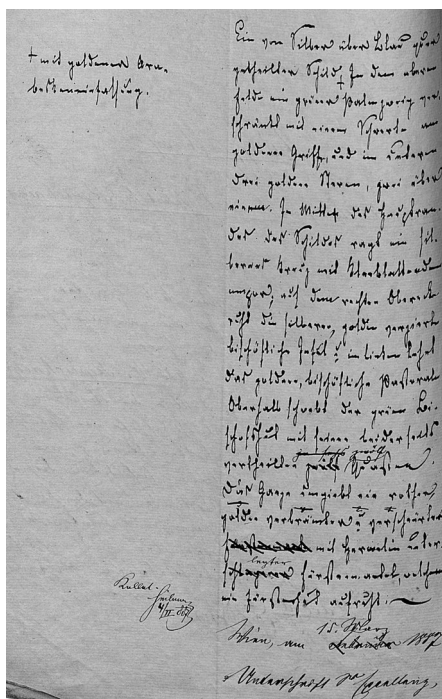 † mit goldener Ara-
beskeneinfassung.
Ein von Silber über Blau quer
getheilter Schild † In dem oberen
Felde ein grüner Palmzweig ver-
schränkt mit einem Schwerte am
goldenen Griffe, und im unteren
drei goldene Sterne, zwei über
einem. In Mitte des Hauptran-
des des Schildes ragt ein sil-
bernes Kreuz mit Kleeblattenden
empor, auf dem rechten Obereck
ruht die silberne, golden verzierte
bischöfliche Inful u im linken lehnt
das goldene, bischöfliche Pastorale
Oberhalb schwebt der grüne Bi-
schofshut mit seinen beiderseits
vertheilten Quasten.
Das Ganze umgiebt ein rother
golden verbrämter u verschnürter
mit Hermelin unter-
legter Fürstenmantel, welchem
ein Fürstenhut aufruht.
Wien, am 15. März
Unterschrift